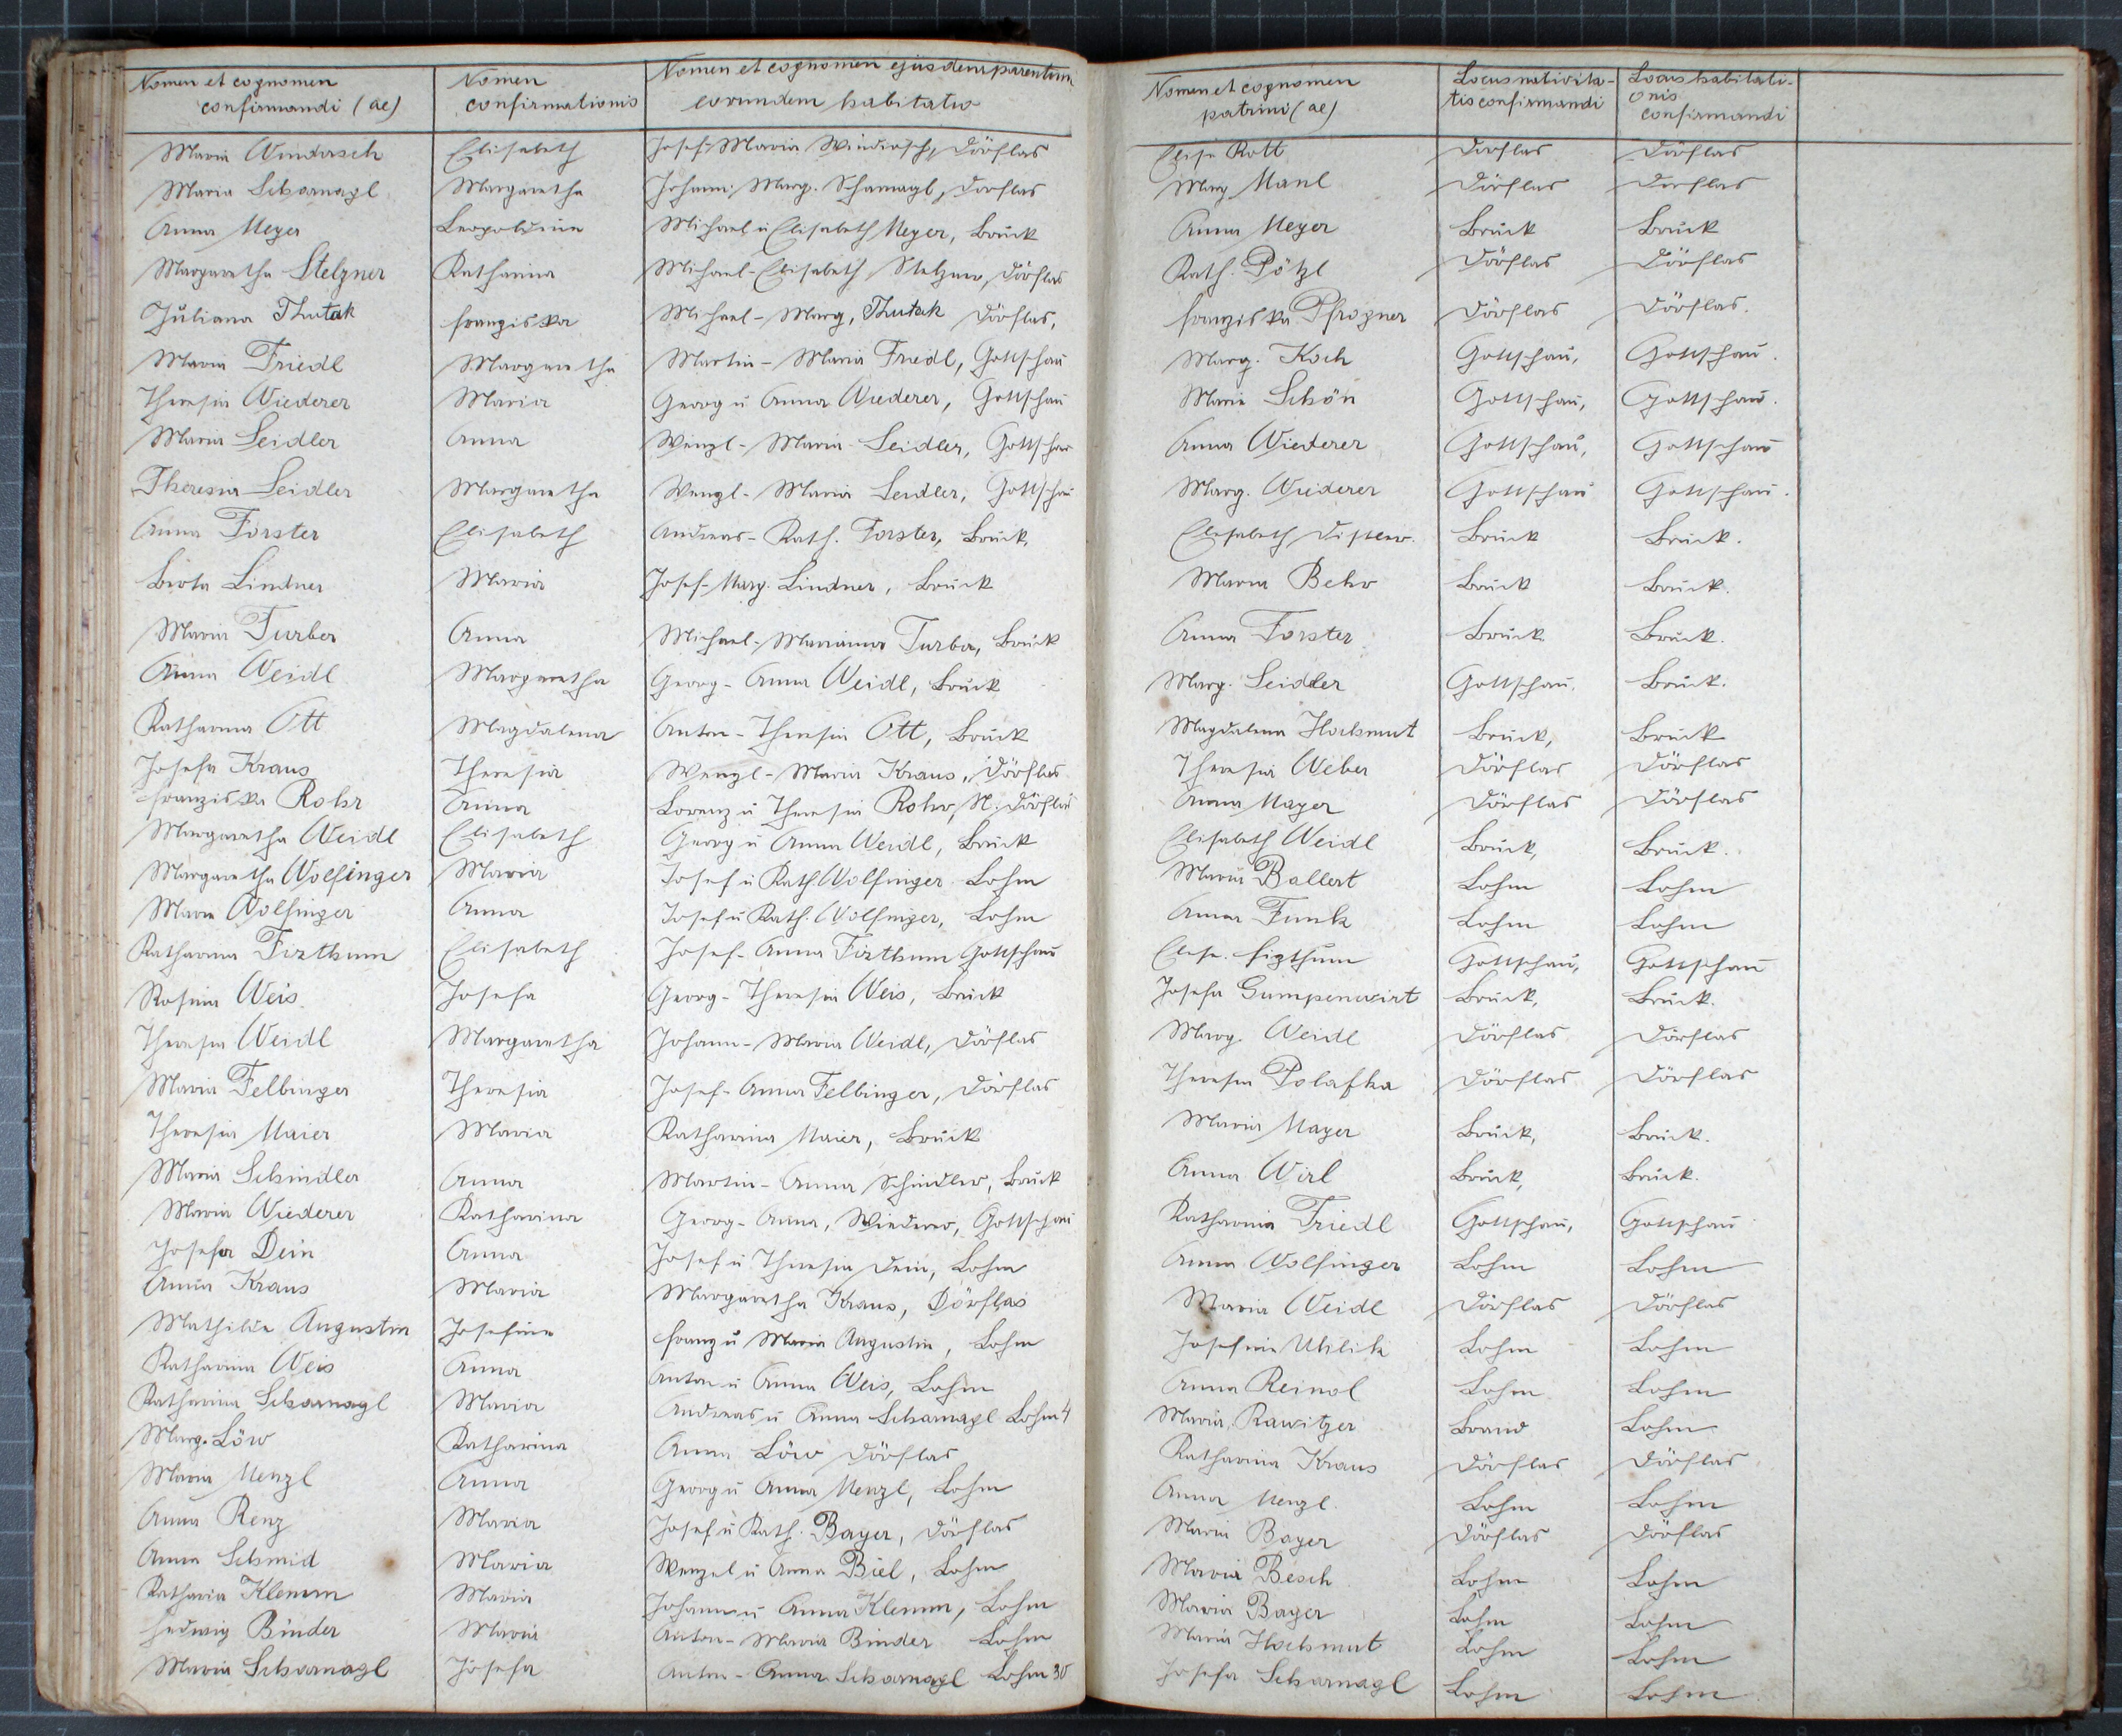 Nomen et cognomen confirmandi (ae) Nomen confirmationis Nomen et cognomen ejusdem parentum eorundem habitatio Nomen et cognomen patrini (ae) Locus nativitatis confirmandi Locus habitationis confirmandi
Maria Windirsch Elisabeth Josef-Maria Windirsch, Dörflas Elise Rott Dörflas Dörflas
Maria Scharnagl Margaretha Johann-Marg. Scharnagl, Dörflas Marg Manl Dörflas Dörflas
Anna Meyer Leopoldine Michael u Elisabeth Meyer, Bruck Anna Meyer Bruck Bruck
Margaretha Stelzner Katharina Michael-Elisabeth Stelzner, Dörflas Kath. Pötzl Dörflas Dörflas
Juliana Thutak Franziska Michael-Marg, Thutak Dörflas, Franziska Pfrogner Dörflas Dörflas.
Maria Friedl Margaretha Martin-Maria Friedl, Gottschau Marg. Koch Gottschau, Gottschau.
Theresia Wiederer Maria Georg u Anna Wiederer, Gottschau Marie Schön Gottschau, Gottschau.
Maria Seidler Anna Wenzl-Maria Seidler, Gottschau Anna Wiederer Gottschau, Gottschau
Theresia Seidler Margaretha Wenzl-Maria Seidler, Gottschau Marg. Wiederer Gottschau Gottschau.
Anna Forster Elisabeth Andreas-Kath. Forster, Bruck, Elisabeth Bruck Bruck.
Berta Lindner Maria Josef-Marg. Lindner, Bruck Maria Behr Bruck Bruck.
Maria Turber Anna Michael-Marianna Turber, Bruck Anna Forster Bruck Bruck.
Anna Weidl Margaretha Georg-Anna Weidl, Bruck Marg. Seidler Gottschau, Bruck.
Katharina Ott Magdalena Anton-Theresia Ott, Bruck Magdalena Hochmut Bruck, Bruck
Josefa Kraus Theresia Wenzl-Maria Kraus, Dörflas Theresia Weber Dörflas Dörflas
Franziska Rohr Anna Lorenz u Theresia Rohr, N. Dörflas Anna Mayer Dörflas Dörflas
Margaretha Weidl Elisabeth Georg u Anna Weidl, Bruck Elisabeth Weidl Bruck, Bruck.
Margaretha Wolfinger Maria Josef u Kath Wolfinger Lohm Maria Ballert Lohm Lohm
Marie Wolfinger Anna Josef u Kath. Wolfinger, Lohm Anna Funk Lohm Lohm
Katharina Fizthum Elisabeth Josef-Anna Fizthum Gottschau Elise. Fizthum Gottschau, Gottschau
Rosina Weis Josefa Georg-Theresia Weis, Bruck Josefa Gumpenwirt Bruck, Bruck.
Theresia Weidl Margaretha Johann-Maria Weidl, Dörflas Marg. Weidl Dörflas Dörflas
Maria Felbinger Theresia Josef-Anna Felbinger, Dörflas Theresia Polafka Dörflas Dörflas
Theresia Maier Maria Katharina Maier, Bruck Maria Mayer Bruck, Bruck.
Maria Schindler Anna Martin-Anna Schindler, Bruck Anna Wirl Bruck, Bruck.
Maria Wiederer Katharina Georg-Anna, Wiederer, Gottschau Katharina Friedl Gottschau, Gottschau
Josefa Dein Anna Josef u Theresia Dein, Lohm Anna Wolfinger Lohm Lohm
Anna Kraus Maria Margaretha Kraus, Dörflas Maria Weidl Dörflas Dörflas
Mathilde Augustin Josefine Franz u Maria Augustin, Lohm Josefine Uhlik Lohm Lohm
Katharina Weis Anna Anton u Anna Weis, Lohm Anna Reinol Lohm Lohm
Katharina Scharnagl Maria Andreas u Anna Scharnagl Lohm 4 Maria Rawitzer Brand Lohm
Marg. Löw Katharina Anna Löw Dörflas Katharina Kraus Dörflas Dörflas
Maria Menzl Anna Georg u Anna Menzl, Lohm Anna Menzl. Lohm Lohm
Anna Renz Maria Josef u Kath. Bayer, Dörflas Maria Bayer Dörflas Dörflas
Anna Schmid Maria Wenzel u Anna Biel, Lohm Maria Besch Lohm Lohm
Katharia Klemm Maria Johann u Anna Klemm, Lohm Maria Bayer Lohm Lohm
Hedwig Binder Maria Anton-Maria Binder Lohm Maria Hochmut Lohm Lohm
Maria Scharnagl Josefa Anton-Anna Scharnagl Lohm 30 Josefa Scharnagl Lohm Lohm
33